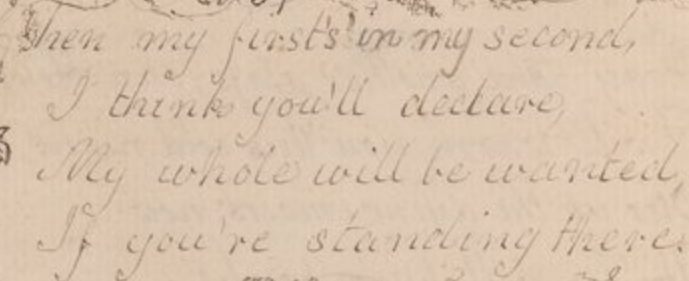 When my first's in my second,
I think you'll declare,
My whole will be wanted,
If you're standing there.